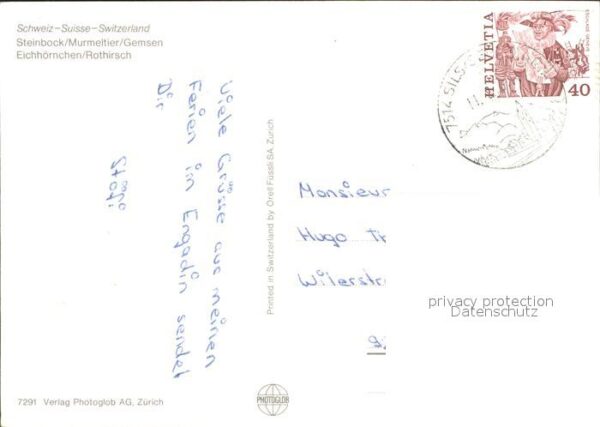 Schweiz–Suisse–Switzerland
Steinbock/Murmeltier/Gemsen
Eichhörnchen/Rothirsch
Viele Grüsse aus meinen
Ferien im Engadin sendet
Dir
Printed in Switzerland by Orell Füssli SA, Zürich
HELVETIA
40
7514 SILS/S
Monsieur
Hugo
Wilerstr
privacy protection
Datenschutz
7291 Verlag Photoglob AG, Zürich
PHOTOGLOB